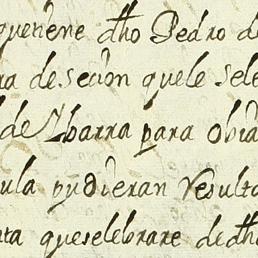 quetiene dho Pedro de
ra de secion quele sele
de Ybarra para obia
ula pudieran Result
nta queselebrare de dh